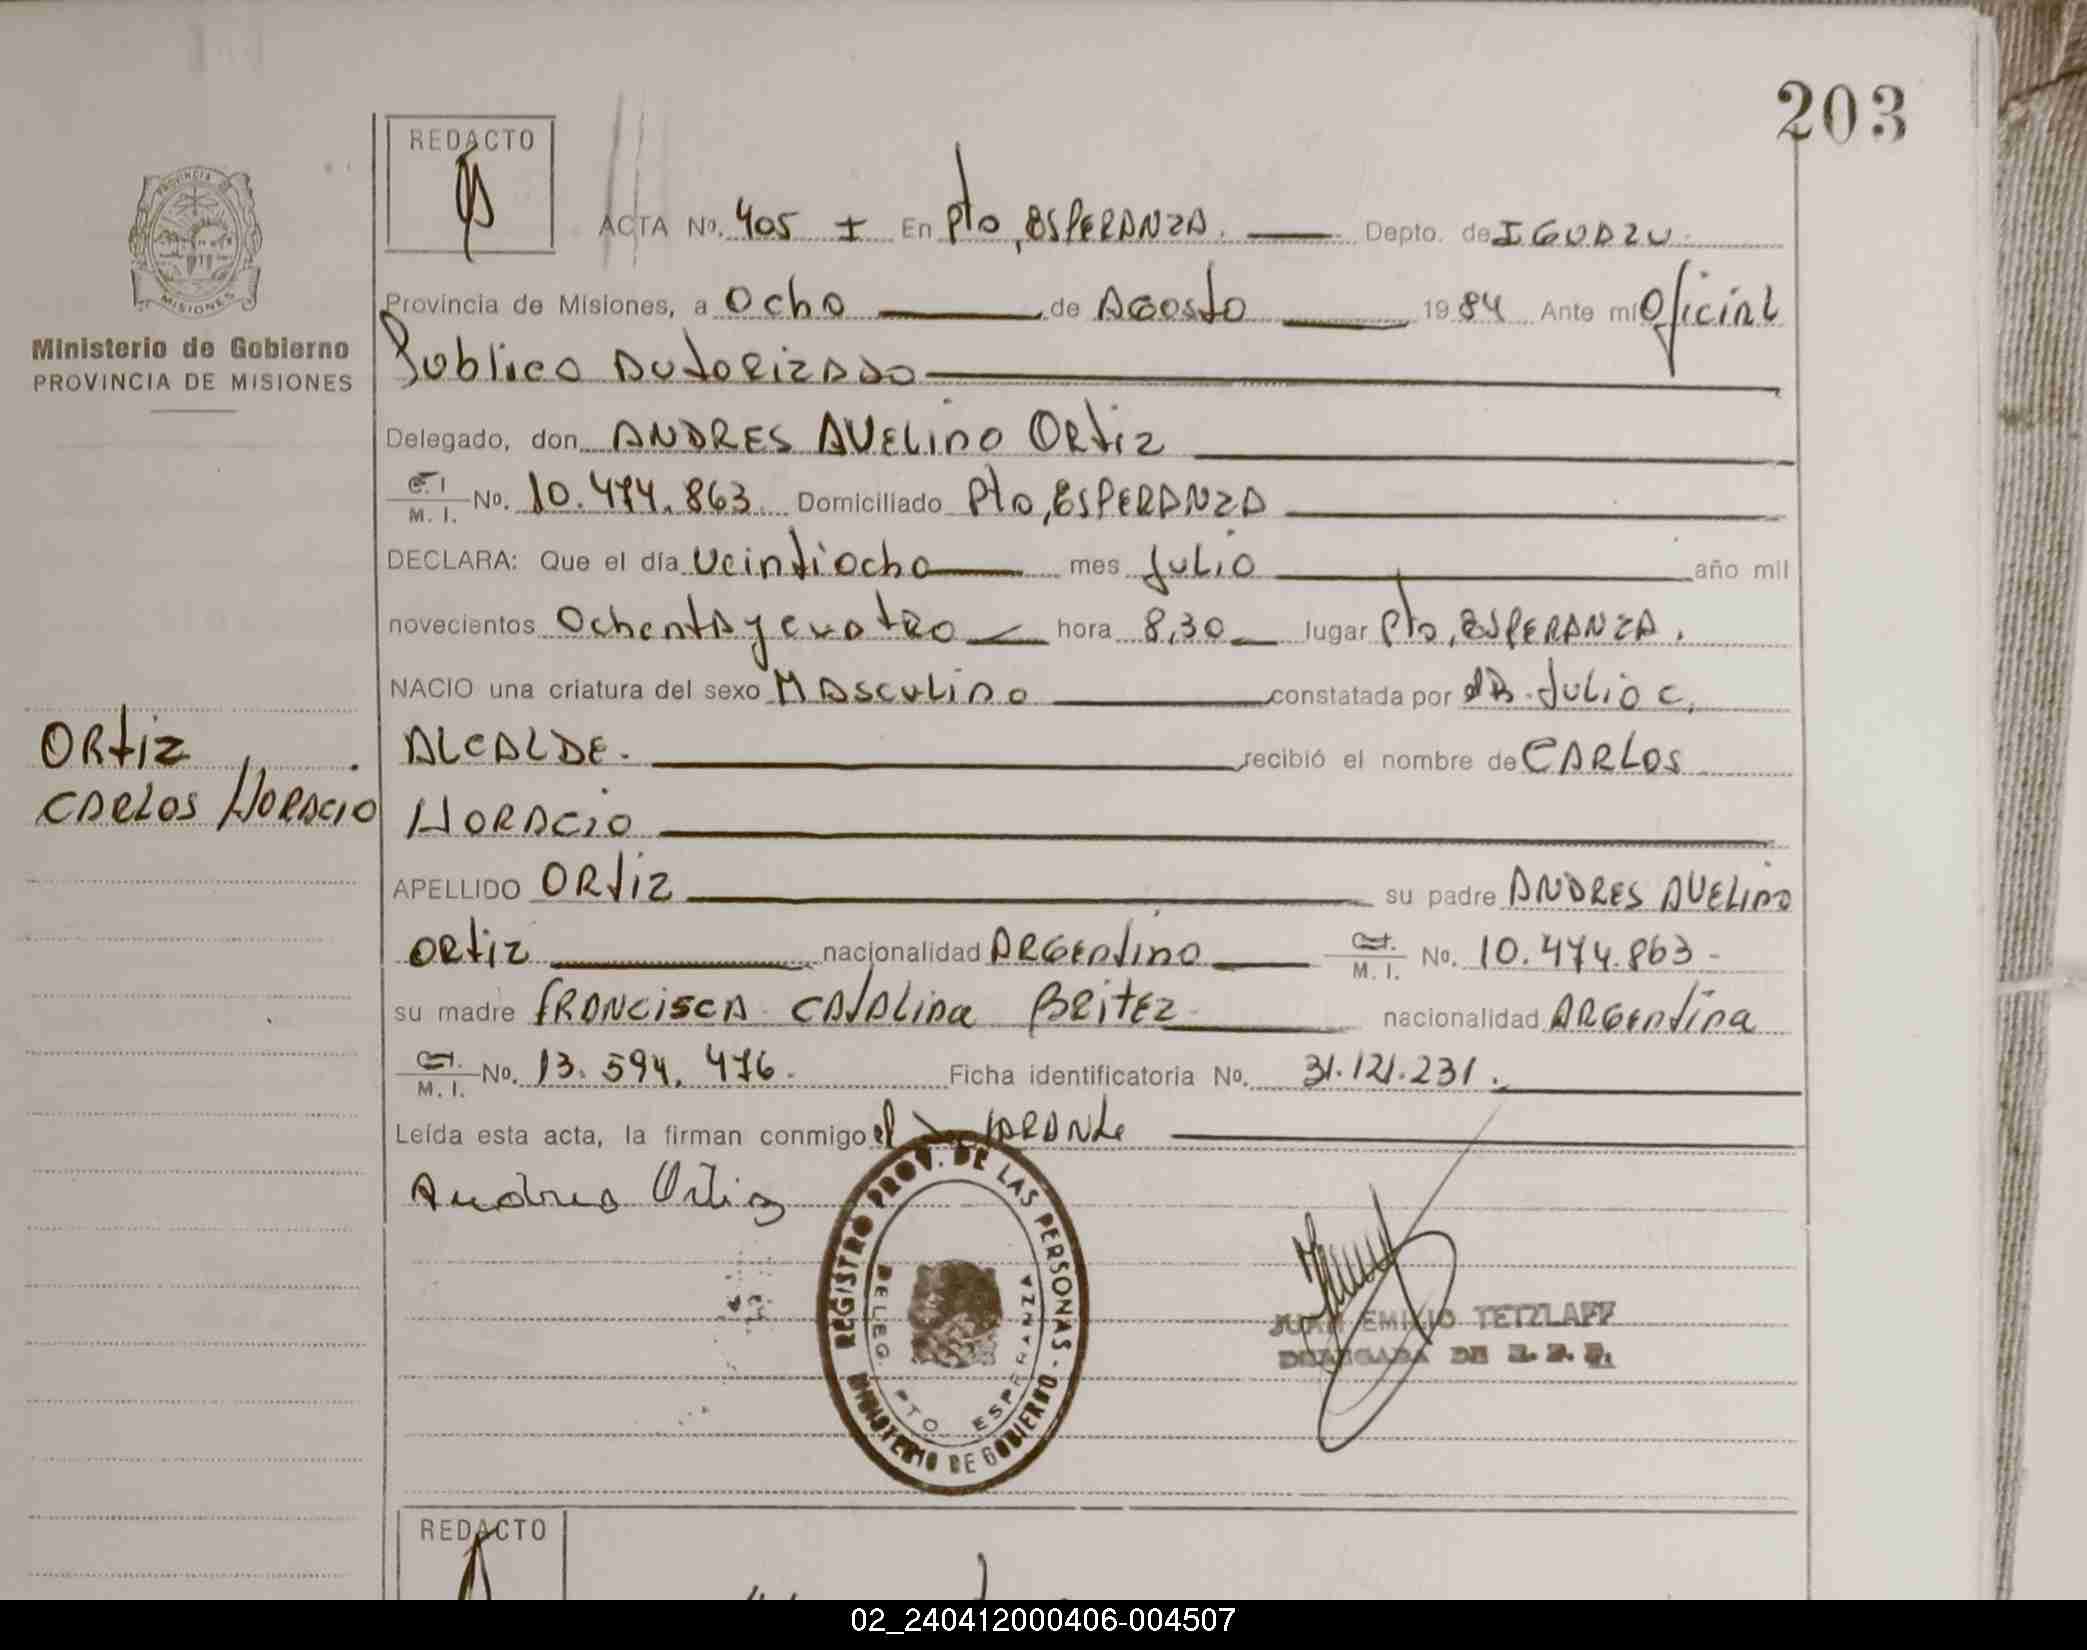 203
REDACTO
ACTA No. 405 I En Pto, ESPERANZA. Depto. de IGUAZU.
Provincia de Misiones, a Ocho de Agosto 1984 Ante mí Oficial
Publico Autorizado
Delegado, don ANDRES AVELINO ORTIZ
C. I
M. I. No. 10.474.863 Domiciliado Pto, ESPERANZA
DECLARA: Que el día Veintiocho mes Julio año mil
novecientos Ochenta y cuatro hora 8,30 lugar Pto, ESPERANZA.
NACIO una criatura del sexo MASculino constatada por dR. Julio C.
ALCALDE. recibió el nombre de CARLOS
HORACIO
APELLIDO ORTIZ su padre ANDRES AVELINO
ORTIZ nacionalidad ARGentino M. I. No. 10.474.863-
su madre FRANCISCA CATALINA BRITEZ nacionalidad ARGentina
M. I. No. 13.594.476. Ficha identificatoria No. 31.121.231.
Leída esta acta, la firman conmigo el
Andres Ortiz
REGISTRO PROV. DE LAS PERSONAS - MINISTERIO DE GOBIERNO
DELEG. PTO ESPERANZA
JUAN EMILIO TETZLAFF
PROVINCIA
MISIONES
Ministerio de Gobierno
PROVINCIA DE MISIONES
ORTIZ
CARLOS HORACIO
REDACTO
02_240412000406-004507